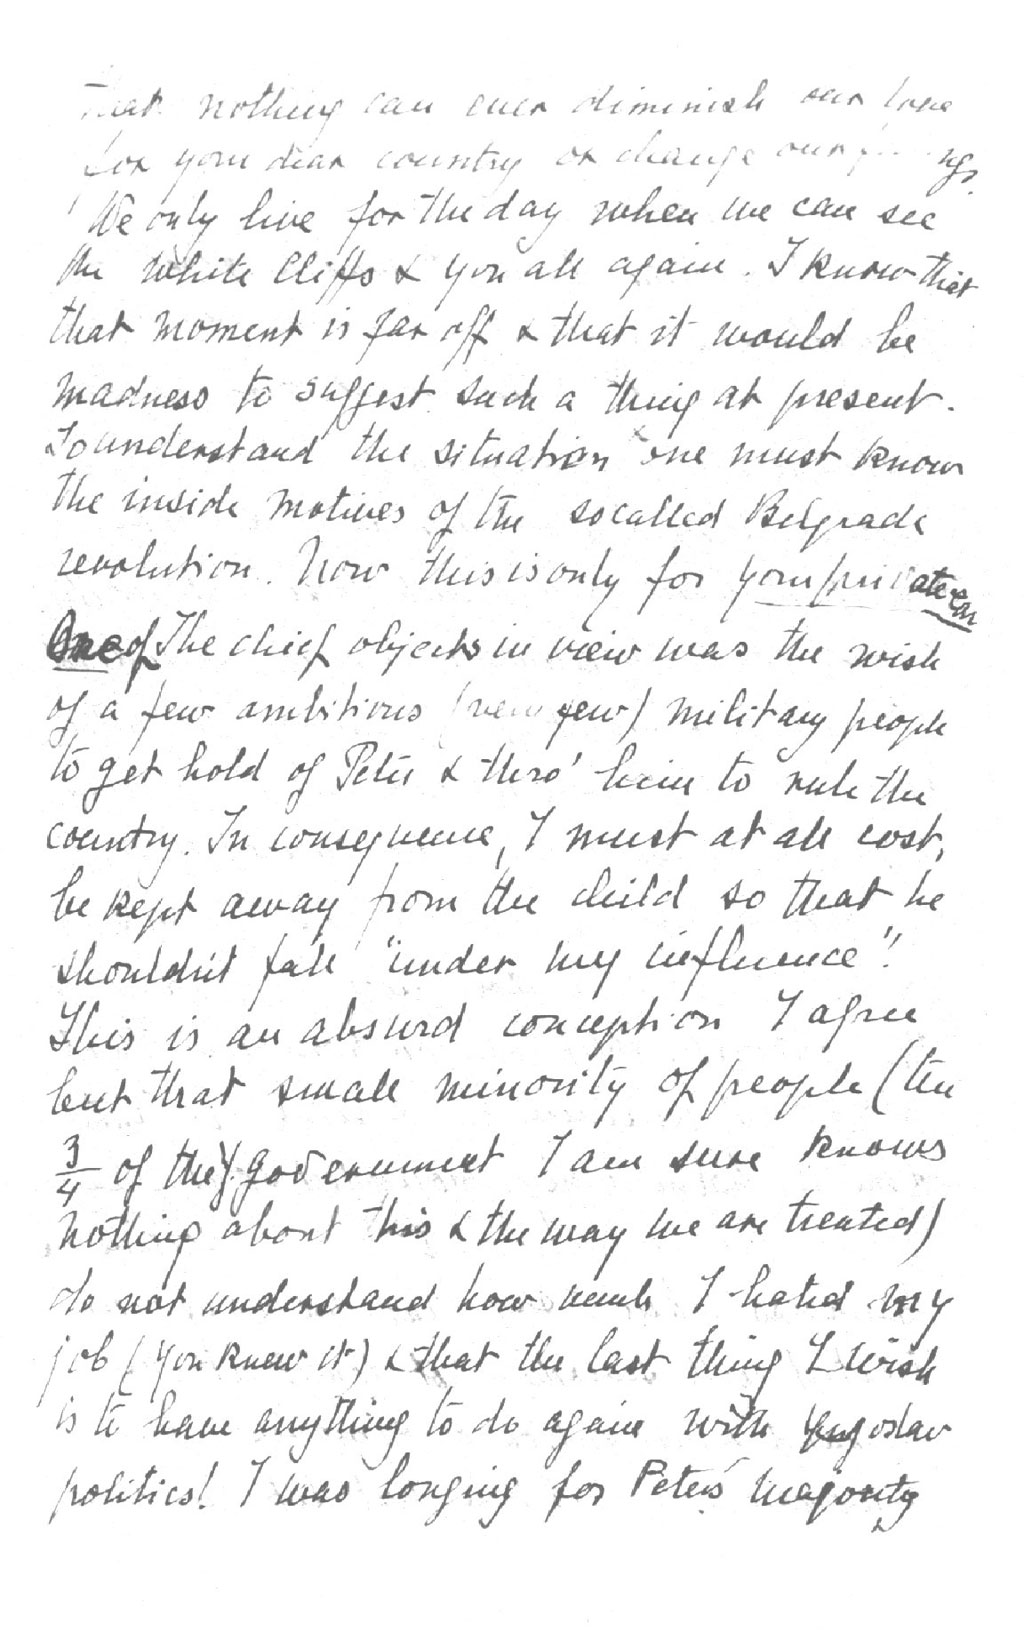 that nothing can ever diminish our love
for your dear country or change our
We only live for the day when we can see
the White Cliffs & you all again. I know that
that moment is far off & that it would be
madness to suggest such a thing at present.
To understand the situation one must know
the inside motives of the socalled Belgrade
revolution. Now this is only for your private ear
One of The chief objects in view was the wish
of a few ambitious (very few) military people
to get hold of Peter & thro' him to rule the
country. In consequence, I must at all cost,
be kept away from the child so that he
shouldn't fall "under my influence"!
This is an absurd conception I agree
but that small minority of people (the
3/4 of the government I am sure knows
nothing about this & the way we are treated)
do not understand how much I hated my
job (you knew it) & that the last thing I wish
is to have anything to do again with Yugoslav
politics! I was longing for Peter's majority